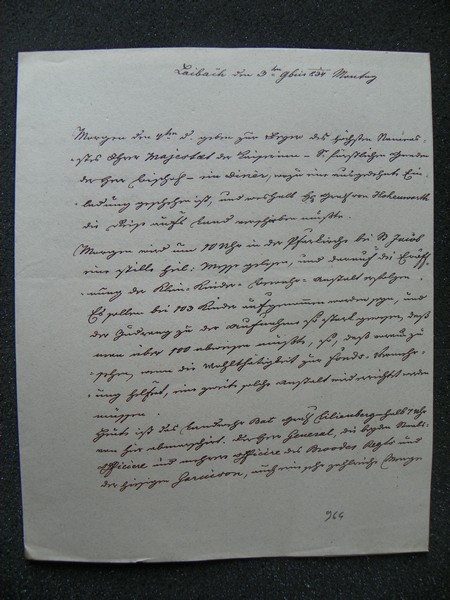 Laibach den 3ten 9bris 834 Montag
Morgen den 4ten d. geben zur Feyer des höchsten Namens-
-festes Ihrer Majestaet der Kaiserin – S. fürstlichen Gnaden
der Herr Bischof – ein diner, wozu eine ausgedehnte Ein-
-ladung geschehen ist, und weshalb Graf von Hohenwarth
die Reise aufs Land verschieben mußte.
Morgen wird um 10 Uhr in der Pfarrkirche bei St Jacob
eine stille heil: Messe gelesen, und darauf die Eröff-
nung der Klein-Kinder-Bewahr-Anstalt erfolgen.
Es sollen bei 103 Kinder aufgenommen worden seyn, und
der Zudrang zu der Aufnahme so stark gewesen, daß
man über 100 abweisen mußte, so, daß man zu
sehen, wenn die Wohlthätigkeit zur Fonds-Vermehr-
-ung hilft, eine zweite solche Anstalt wird errichtet werden
müssen.
Heute ist das Landwehr Bat. Graf Lilienberg halb 7 Uhr
von hier abmarschirt. Der Herr General, die beiden
officiere und mehrere officiere des Regts und
der hiesigen Garnison, auch eine sehr zahlreiche Menge
964